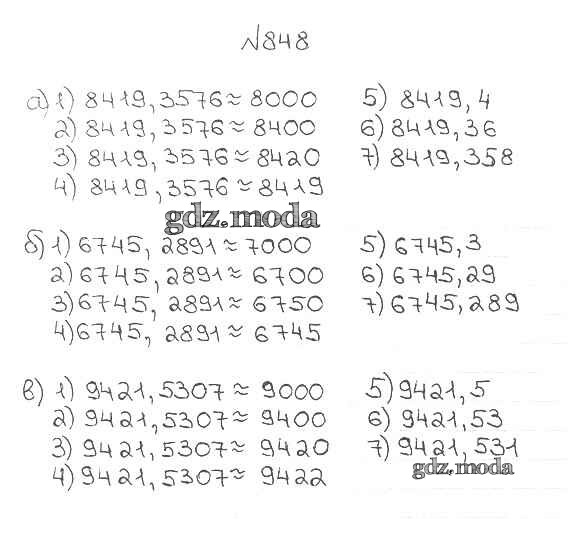 №848
а) 1) 8419,3576 ≈ 8000 5) 8419,4
2) 8419,3576 ≈ 8400 6) 8419,36
3) 8419,3576 ≈ 8420 7) 8419,358
4) 8419,3576 ≈ 8419
gdz.moda
б) 1) 6745,2891 ≈ 7000 5) 6745,3
2) 6745,2891 ≈ 6700 6) 6745,29
3) 6745,2891 ≈ 6750 7) 6745,289
4) 6745,2891 ≈ 6745
в) 1) 9421,5307 ≈ 9000 5) 9421,5
2) 9421,5307 ≈ 9400 6) 9421,53
3) 9421,5307 ≈ 9420 7) 9421,531
gdz.moda
4) 9421,5307 ≈ 9422